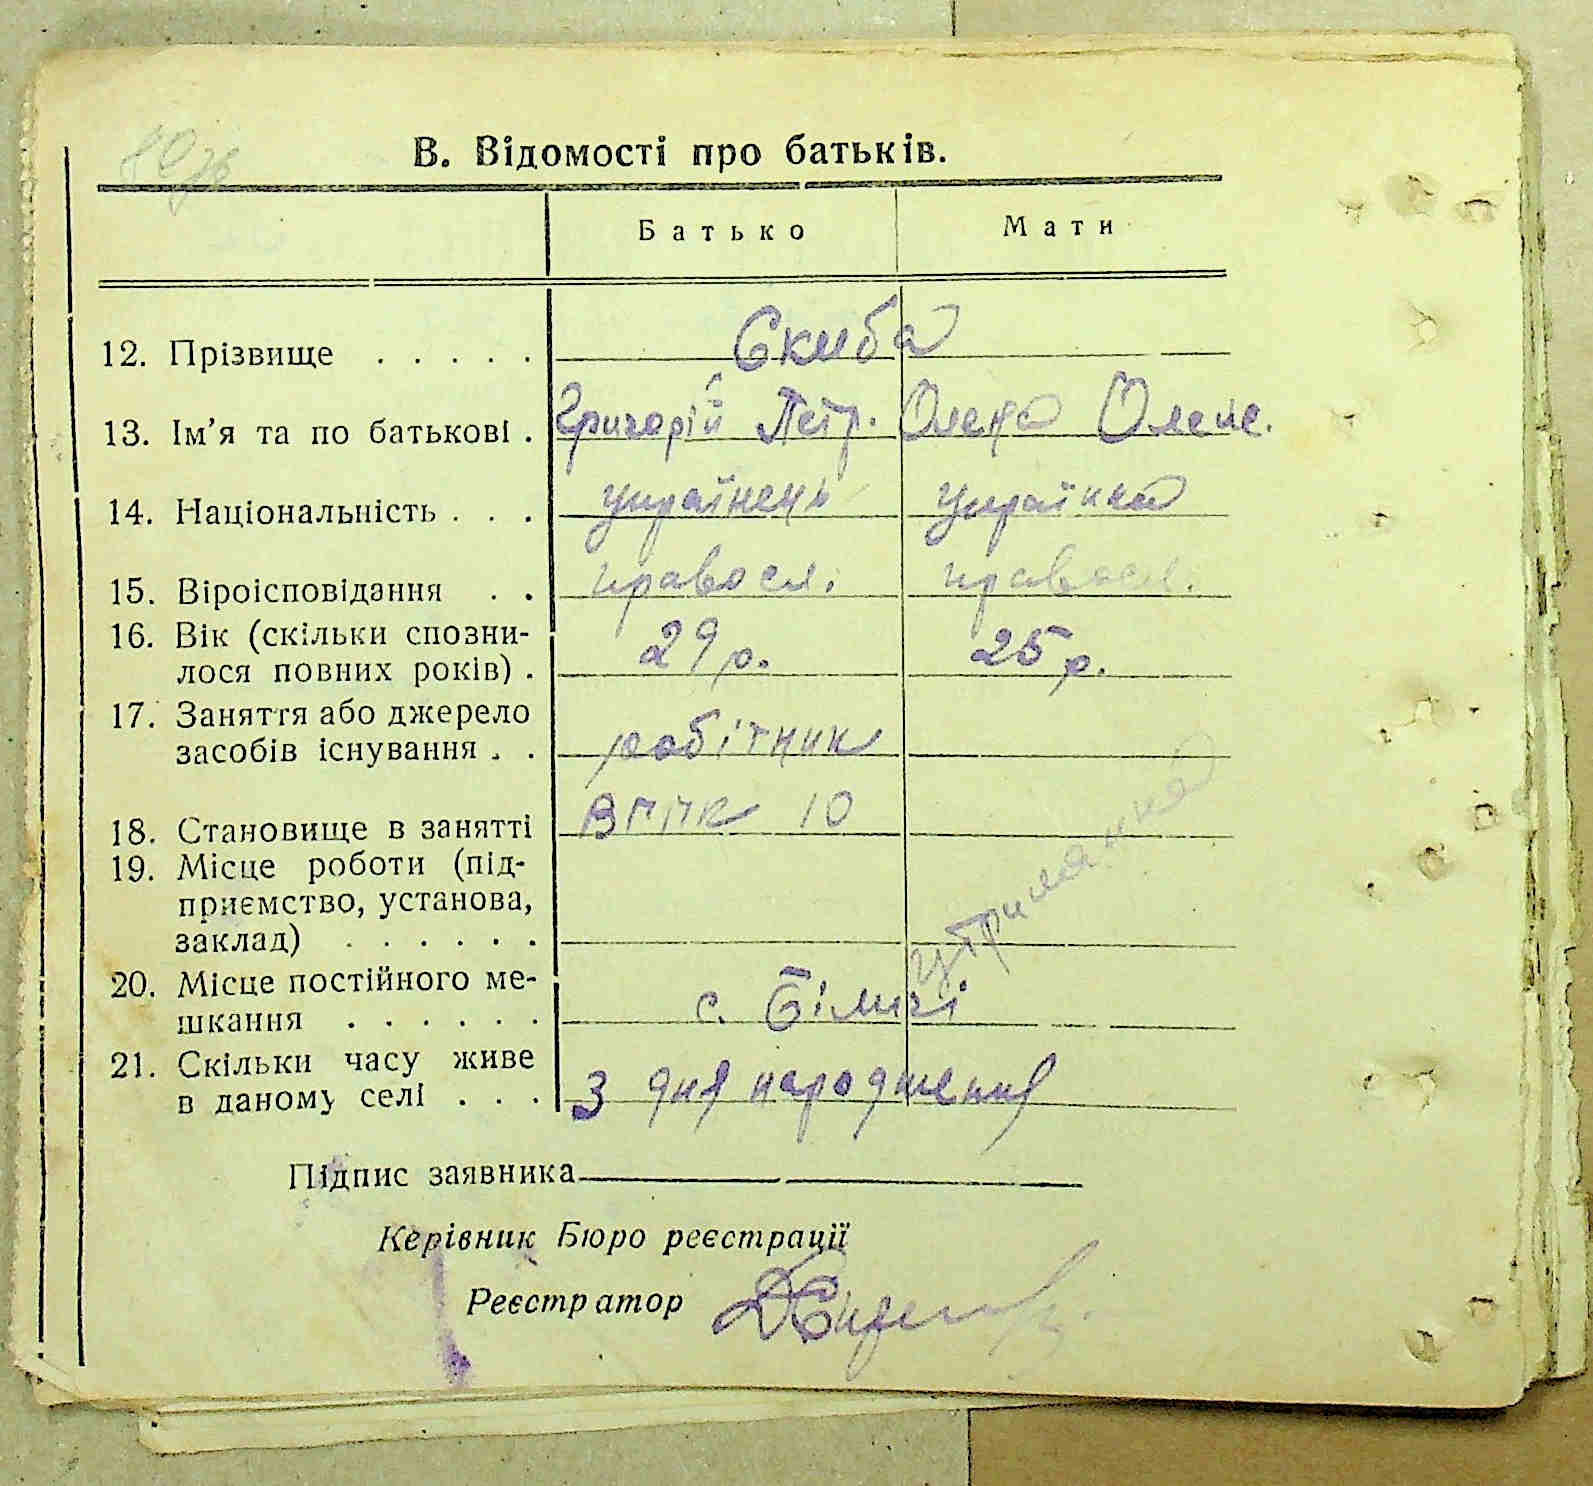 В. Відомості про батьків.
Батько Мати
12. Прізвище . . . . . Скиба
13. Ім'я та по батькові . Григорій Петр. Олена Олекс.
14. Національність . . . українець українка
15. Віроісповідання . . правосл. правосл.
16. Вік (скільки спозни-
лося повних років) . 29 р. 25 р.
17. Заняття або джерело
засобів існування . . робітник
18. Становище в занятті 10
19. Місце роботи (під-
приємство, установа,
заклад) . . . . . .
утриманка
20. Місце постійного ме-
шкання . . . . . . с. Біличі
21. Скільки часу живе
в даному селі . . . З дня народження
Підпис заявника
Керівник Бюро реєстрації
Реєстратор